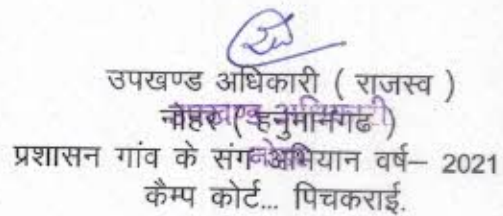 उपखण्ड अधिकारी ( राजस्व )
नोहर ( हनुमानगढ )
प्रशासन गांव के संग अभियान वर्ष– 2021
कैम्प कोर्ट... पिचकराई.